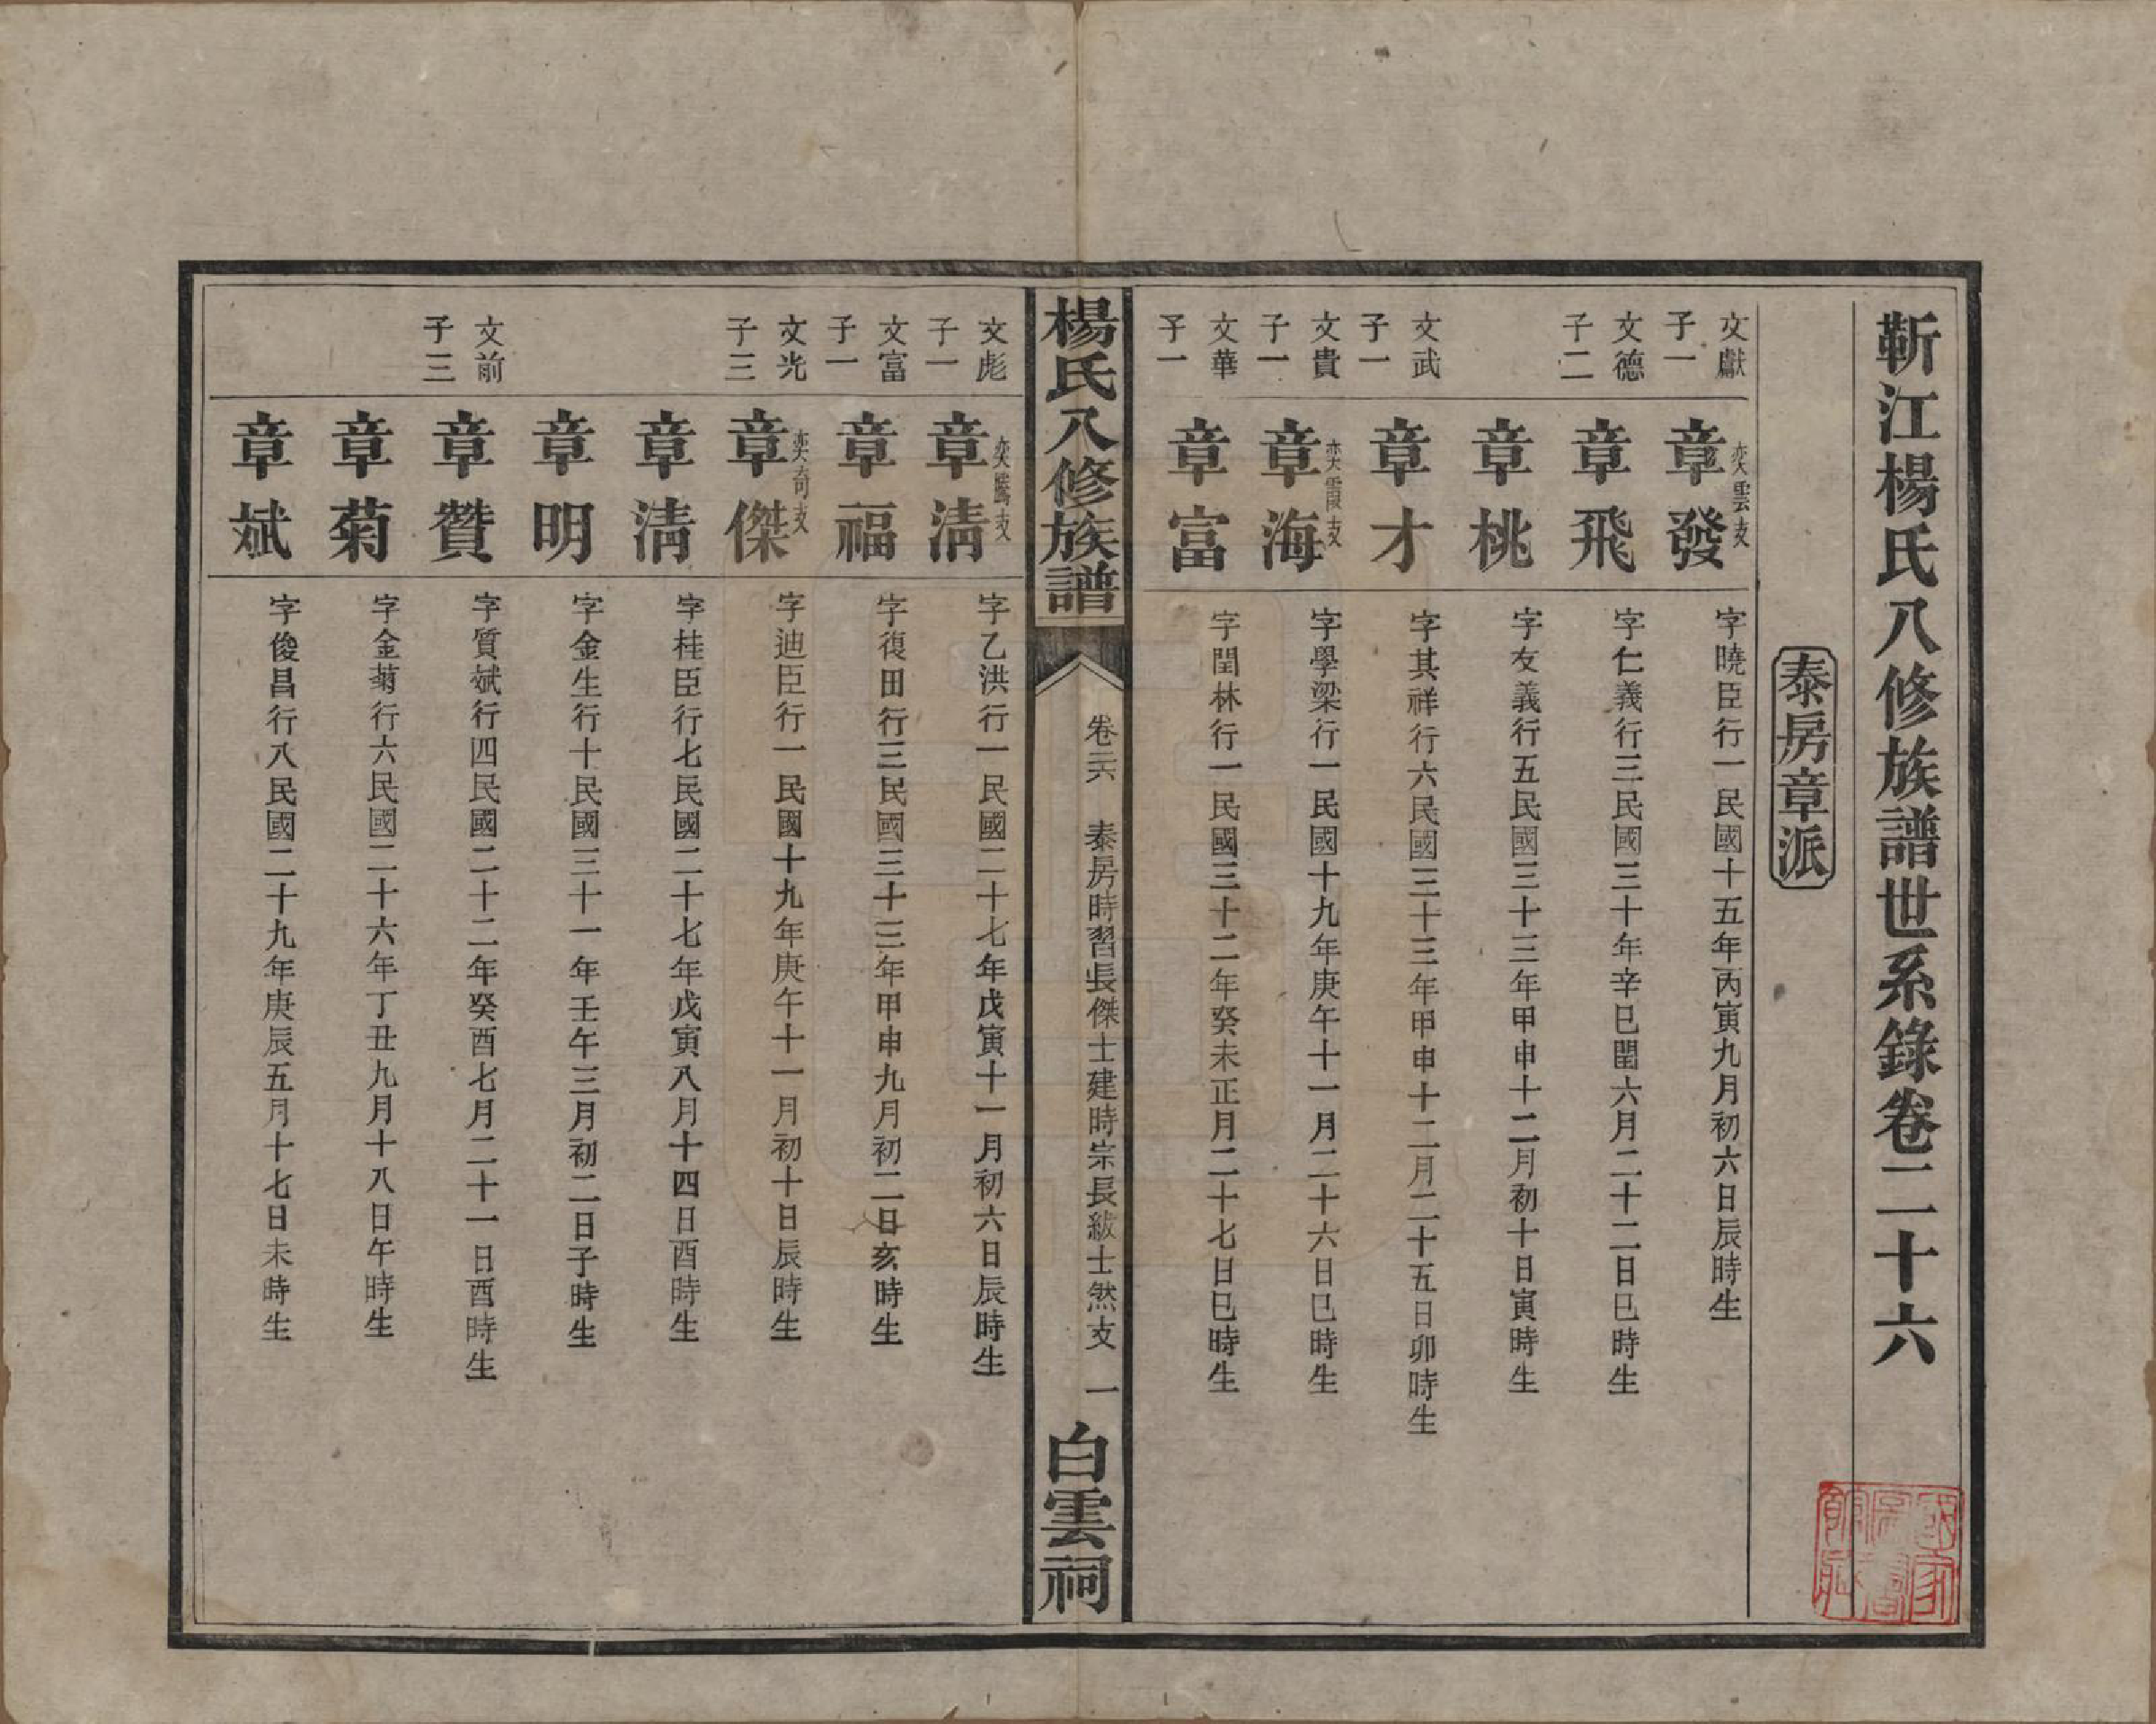 靳江楊氏八修族譜世系錄卷二十六
泰房章派
文獻
子一
奕雲支
章發
字曉臣行一民國十五年丙寅九月初六日辰時生
文德
子二
章飛
字仁義行三民國三十年辛巳閏六月二十二日巳時生
章桃
字友義行五民國三十三年甲申十二月初十日寅時生
文武
子一
章才
字其祥行六民國三十三年甲申十二月二十五日卯時生
文貴
子一
奕霞支
章海
字學梁行一民國十九年庚午十一月二十六日巳時生
文華
子一
章富
字閏林行一民國三十二年癸未正月二十七日巳時生
楊氏八修族譜
卷二六
泰房時習長傑士建時宗長紱士然支
一
白雲祠
文彪
子一
奕鵬支
章清
字乙洪行一民國二十七年戊寅十一月初六日辰時生
文富
子一
章福
字復田行三民國三十三年甲申九月初二日亥時生
文光
子三
奕奇支
章傑
字迪臣行一民國十九年庚午十一月初十日辰時生
章清
字桂臣行七民國二十七年戊寅八月十四日酉時生
章明
字金生行十民國三十一年壬午三月初二日子時生
文前
子三
章贊
字質斌行四民國二十二年癸酉七月二十一日酉時生
章菊
字金菊行六民國二十六年丁丑九月十八日午時生
章斌
字俊昌行八民國二十九年庚辰五月十七日未時生